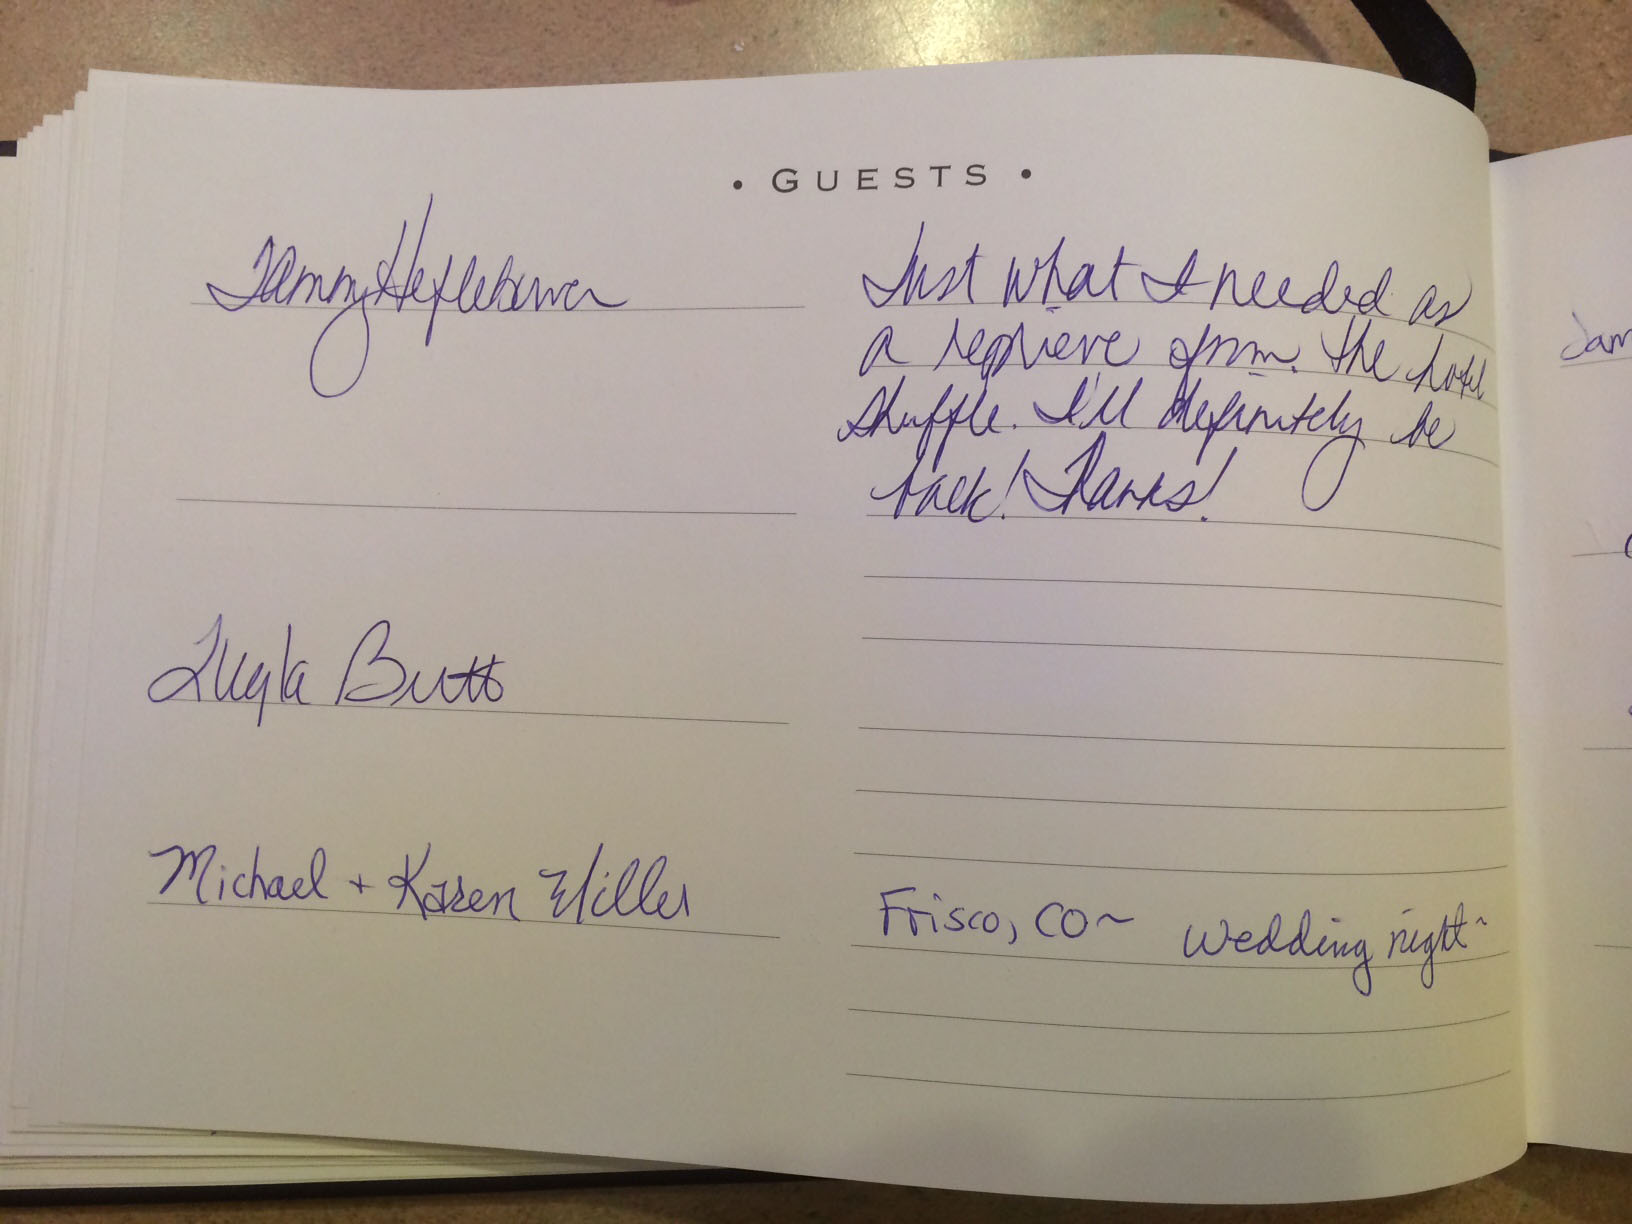 • GUESTS •
Tammy Heflebower
Just what I needed as
a reprieve from the hotel
shuffle. I'll definitely be
back! Thanks!
Butts
Michael + Karen Miller
Frisco, CO~ wedding night~
Jam